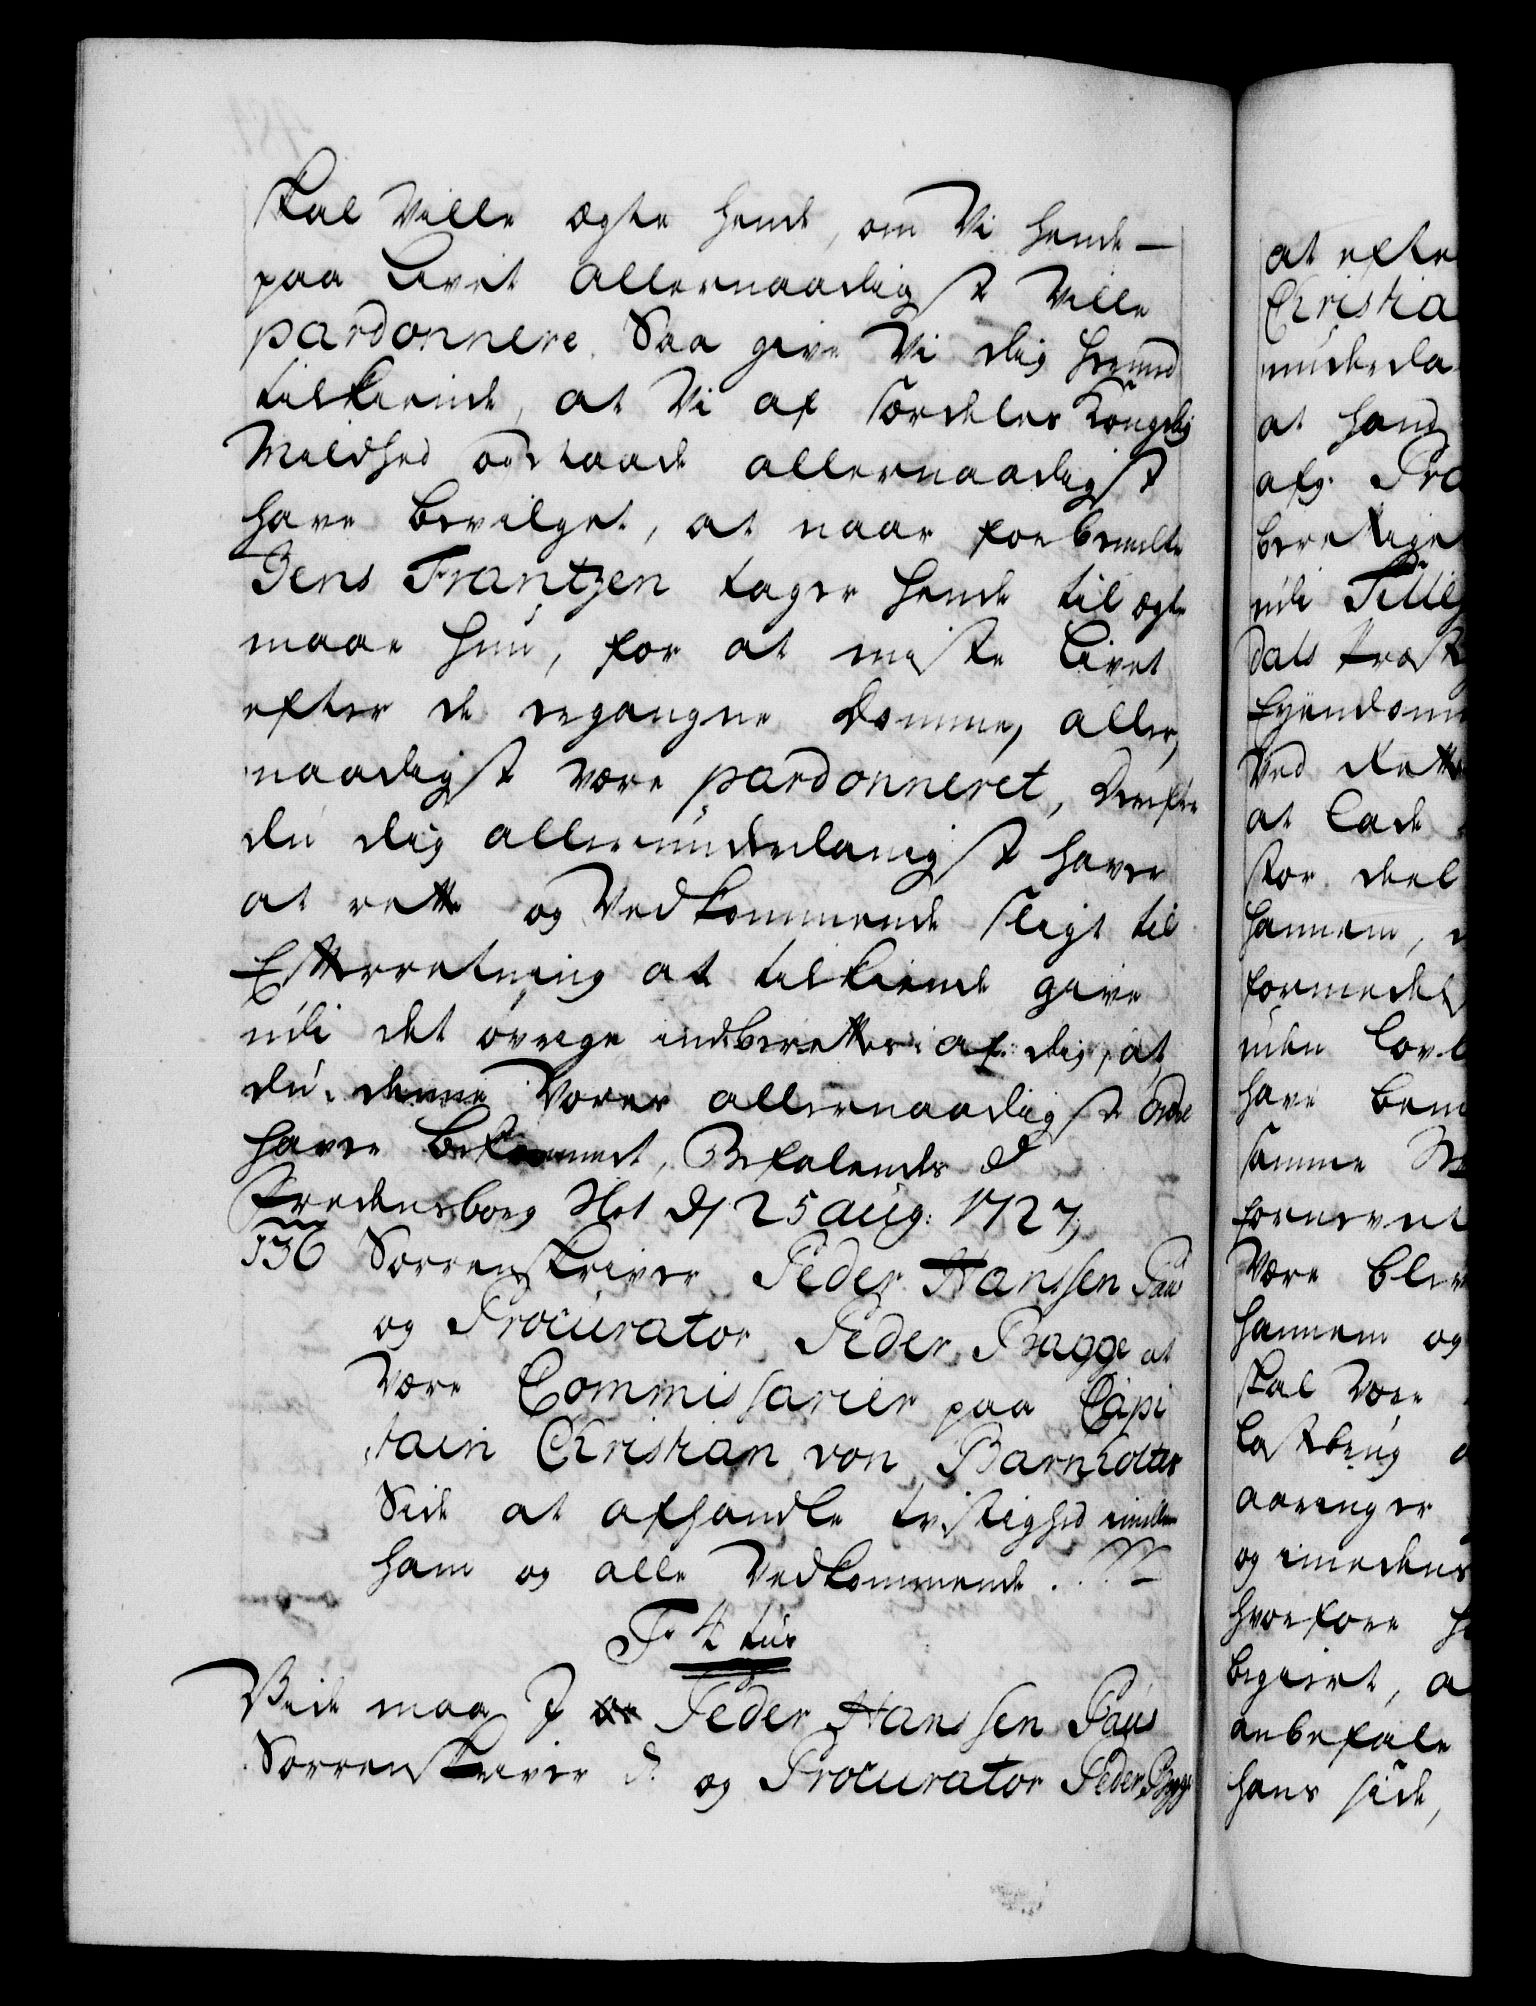 skal Ville ægte hende, om Vi hende
paa Livet Allernaadigst Ville
pardonnere. Saa give Vi dig hermed
tilkiende, at Vi af særdeles Kongelig
Mildhed og Naade allernaadigst
have bevilget, at naar forbemelte
Jens Frantzen tager hende til ægte
maae hun, for at miste Livet
efter de ergangne Domme, aller,
naadigst være pardonneret, Derefter
du dig allerunderdanigst haver
at rette og Vedkommende sligt til
Efterretning at tilkiende give
udi det øvrige indberettes af dig, at
du denne Vores allernaadigste Ordre
haver bekommet, Befalendes d
Fredensborg Slot d/ 25 aug: 1727,
136 Sorrenskriver Peder Hanssen Paus
og Procurator Peder Bagge at
være Commissarier paa Capi
tain Christian von Barnholtes
Side at afhandle tvistighed imellem
ham og alle Vedkommende.
F 4 tus
Viide maa J Peder Hanssen Paus
Sorrenskriver og Procurator Peder Bagge
at efte
Christia
underda
at hand
afg. Pro
beretiget
udi Tille
dals Præste
Eyendom
Ved Rette
at lade
stor deel
hannem,
formedelst
uden lovl
have bem
samme
forrevet
være blev
hannem og
skal være
aaringer
og imedens
hvorfore h
begiert, a
anbefale
hans side,